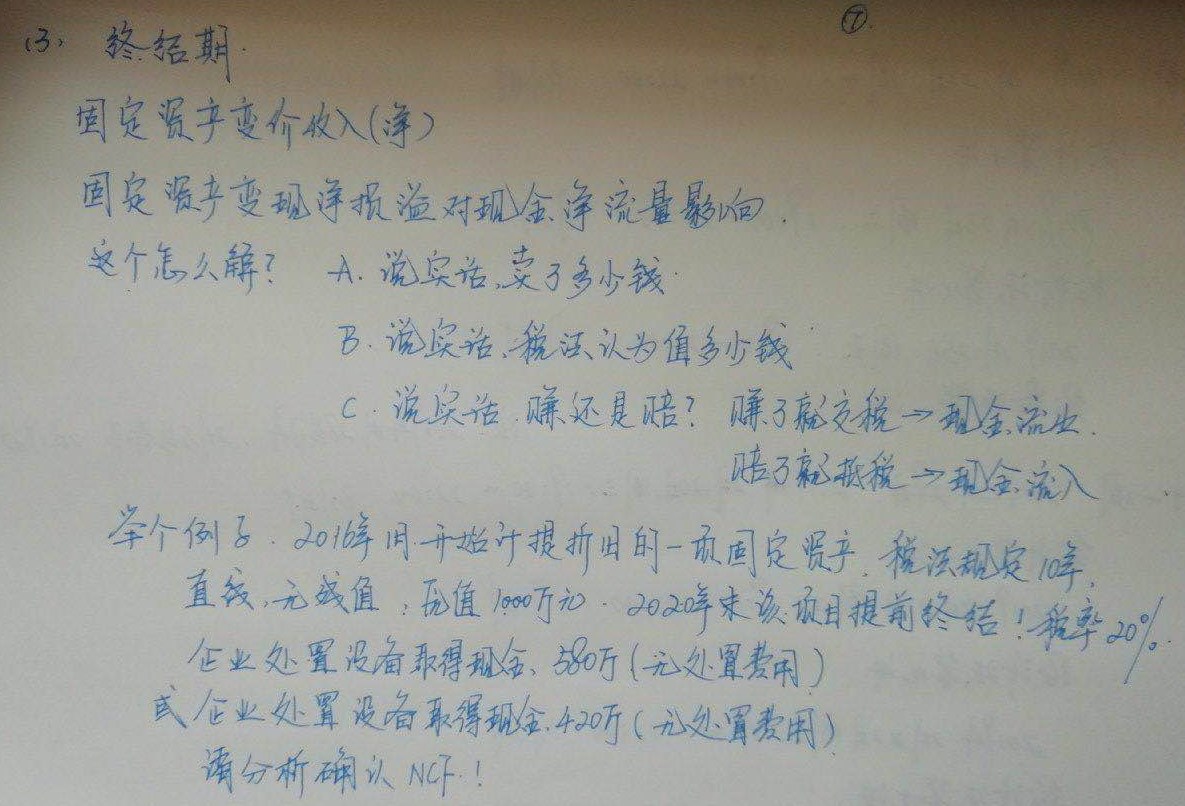 ⑦.
(3). 终结期.
固定资产变价收入(净)
固定资产变现净损益对现金净流量影响.
这个怎么解? A. 说实话,卖了多少钱.
B. 说实话,税法认为值多少钱
C. 说实话.赚还是赔? 赚了就交税→现金流出.
赔了就抵税→现金流入
举个例子. 2016年 开始计提折旧的一项固定资产,税法规定10年,
直线,无残值,原值1000万元. 2020年末该项目提前终结!税率20%.
企业处置设备取得现金580万(无处置费用)
或企业处置设备取得现金420万(无处置费用)
请分析确认NCF.!